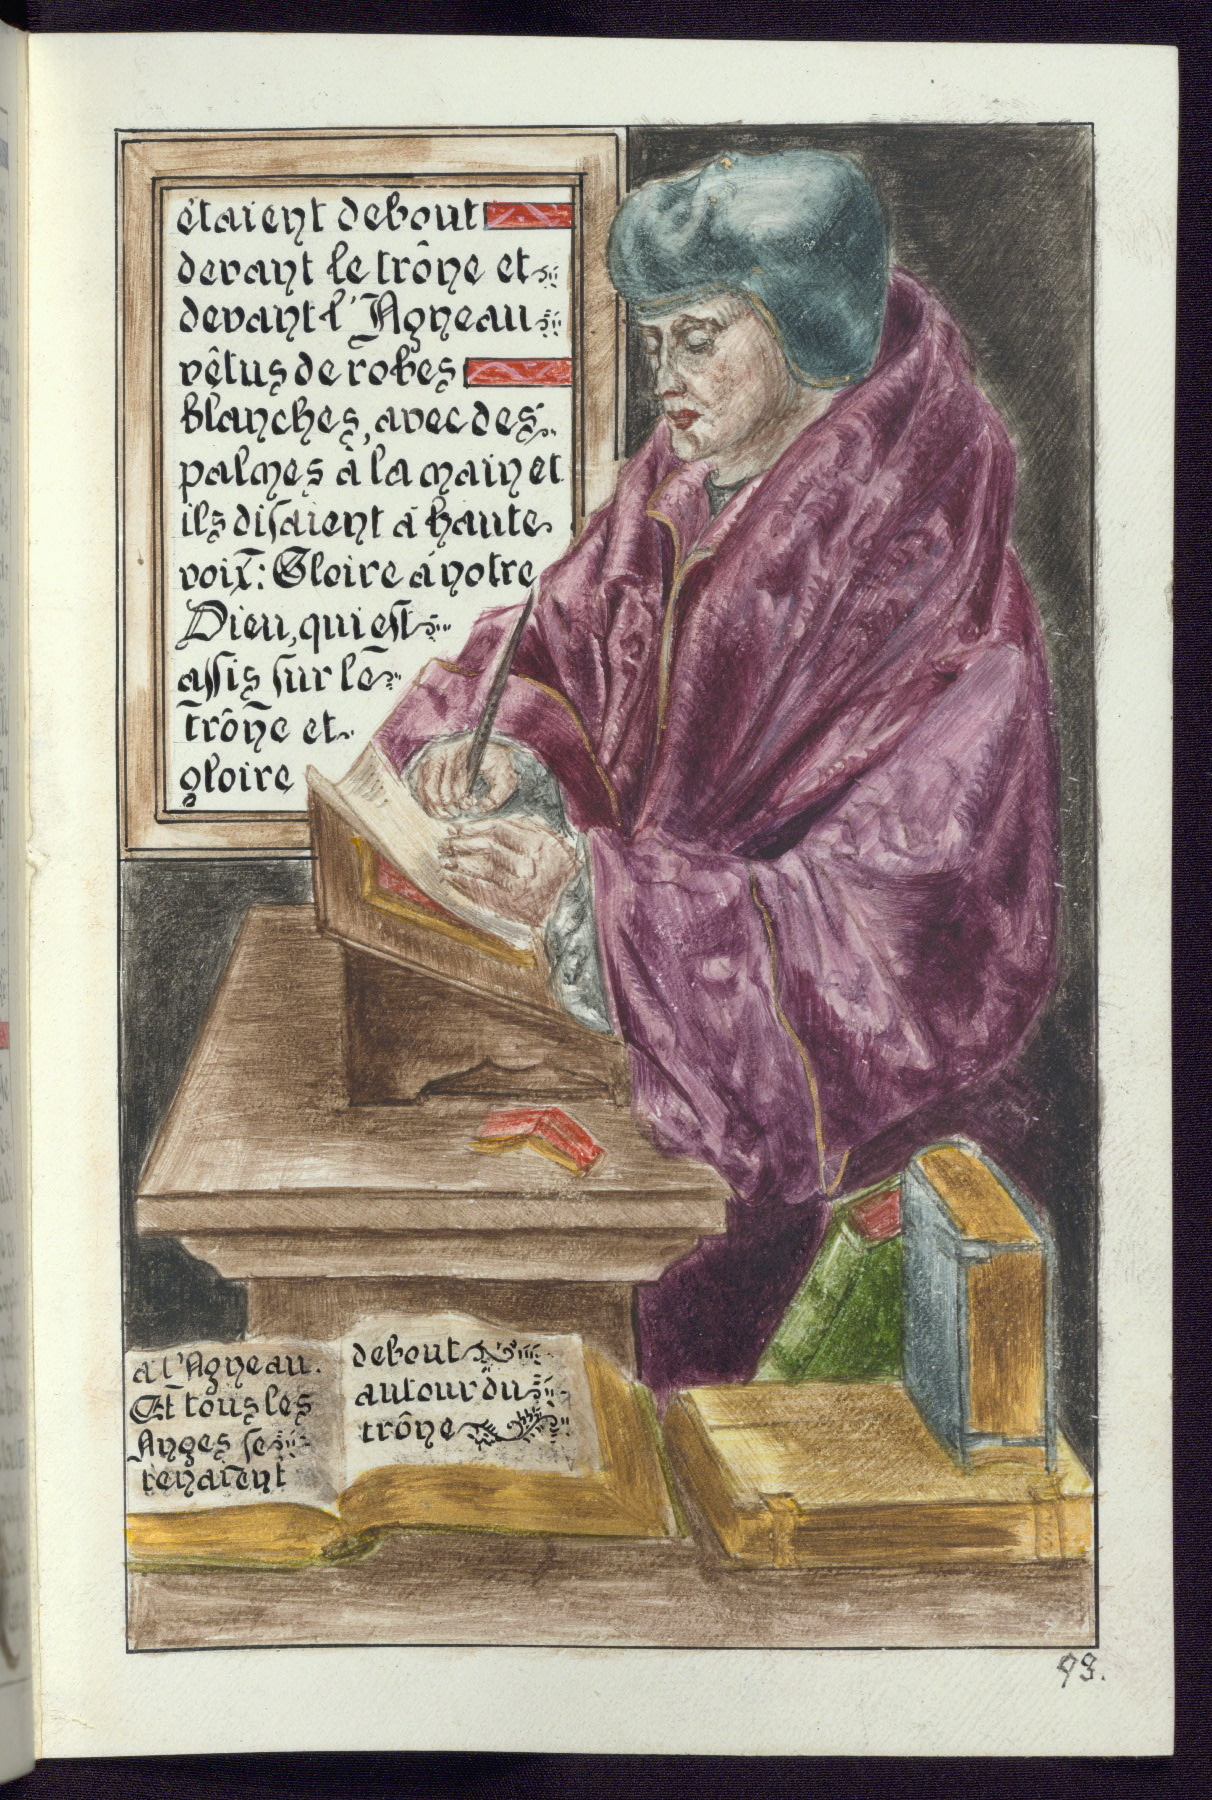 étaient debout
devant le trône et
devant l'Agneau
vêtus de robes
blanches, avec des
palmes à la main et
ils disaient à haute
voix: Gloire à notre
Dieu, qui est
assis sur le
trône et
gloire
à l'Agneau.
Et tous les
Anges se
tenaient
debout
autour du
trône
93.